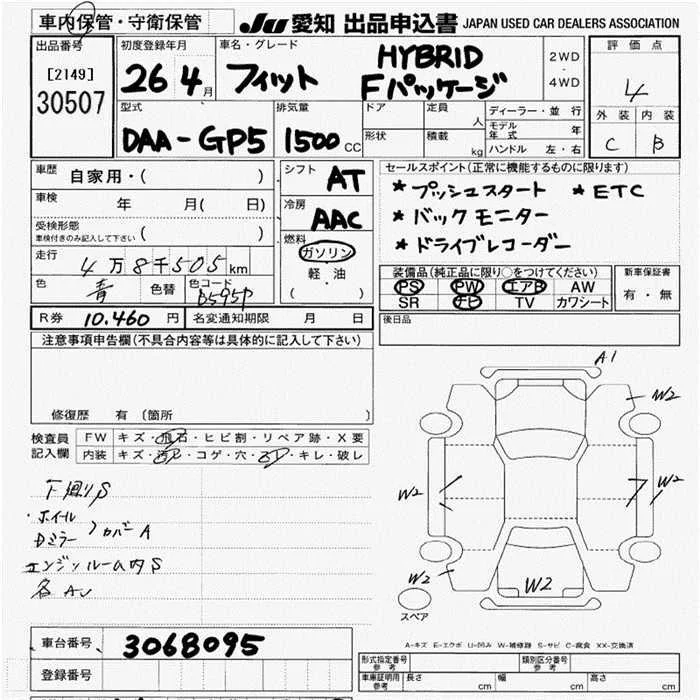 車内保管・守衛保管
JU 愛知 出品申込書 JAPAN USED CAR DEALERS ASSOCIATION
出品番号
[2149]
30507
初度登録年月
26 4月
車名・グレード
フィット
HYBRID
Fパッケージ
2WD
・
4WD
評価点
4
外装 内装
C B
型式
DAA-GP5
排気量
1500 CC
ドア
形状
定員 人
積載 kg
ディーラー・並行
モデル年式 年
ハンドル 左・右
車歴 自家用・( )
車検 年 月( 日)
受検形態
車検付きのみ記入して下さい ( )
走行 4万8千505km
色 青 色替 色コード B595P
シフト AT
冷房 AAC
燃料
ガソリン
軽・油
( )
セールスポイント(正常に機能するものに限ります)
* プッシュスタート * ETC
* バックモニター
* ドライブレコーダー
装備品(純正品に限り○をつけてください)
PS PW エアB AW
SR ナビ TV カワシート
新車保証書
有・無
R券 10.460 円 名変通知期限 月 日
後日品
注意事項申告欄(不具合内容等は具体的に記入して下さい)
修復歴 有 〔箇所 〕
検査員記入欄
FW キズ・飛石・ヒビ割・リペア跡・X要
内装 キズ・汚レ・コゲ・穴・スレ・キレ・破レ
下廻りS
・ホイール
Dミラー
カバーA
エンジンルーム内S
各AU
A1
W2
W2
W2
W2
W2
スペア
A-キズ E-エクボ U-凹み W-補修跡 S-サビ C-腐食 XX-交換済
車台番号 3068095
登録番号
型式指定番号 参考
類別区分番号 参考
車庫証明用 参考 長さ cm 幅 cm 高さ cm